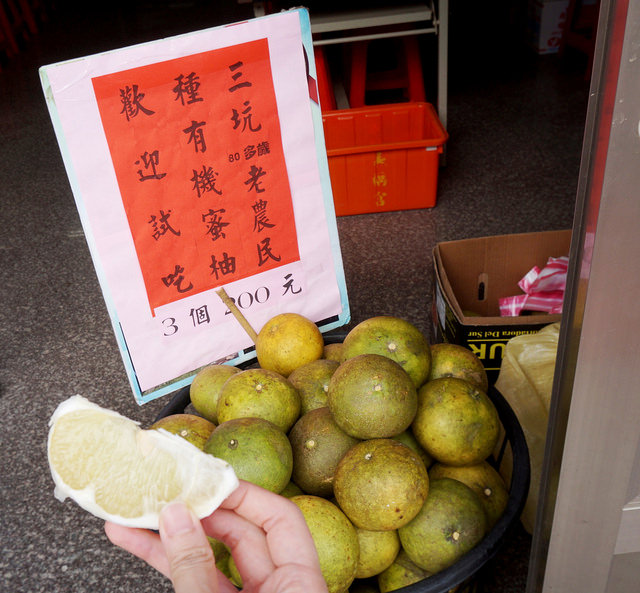 三坑80多歲老農民
種有機蜜柚
歡迎試吃
3個200元